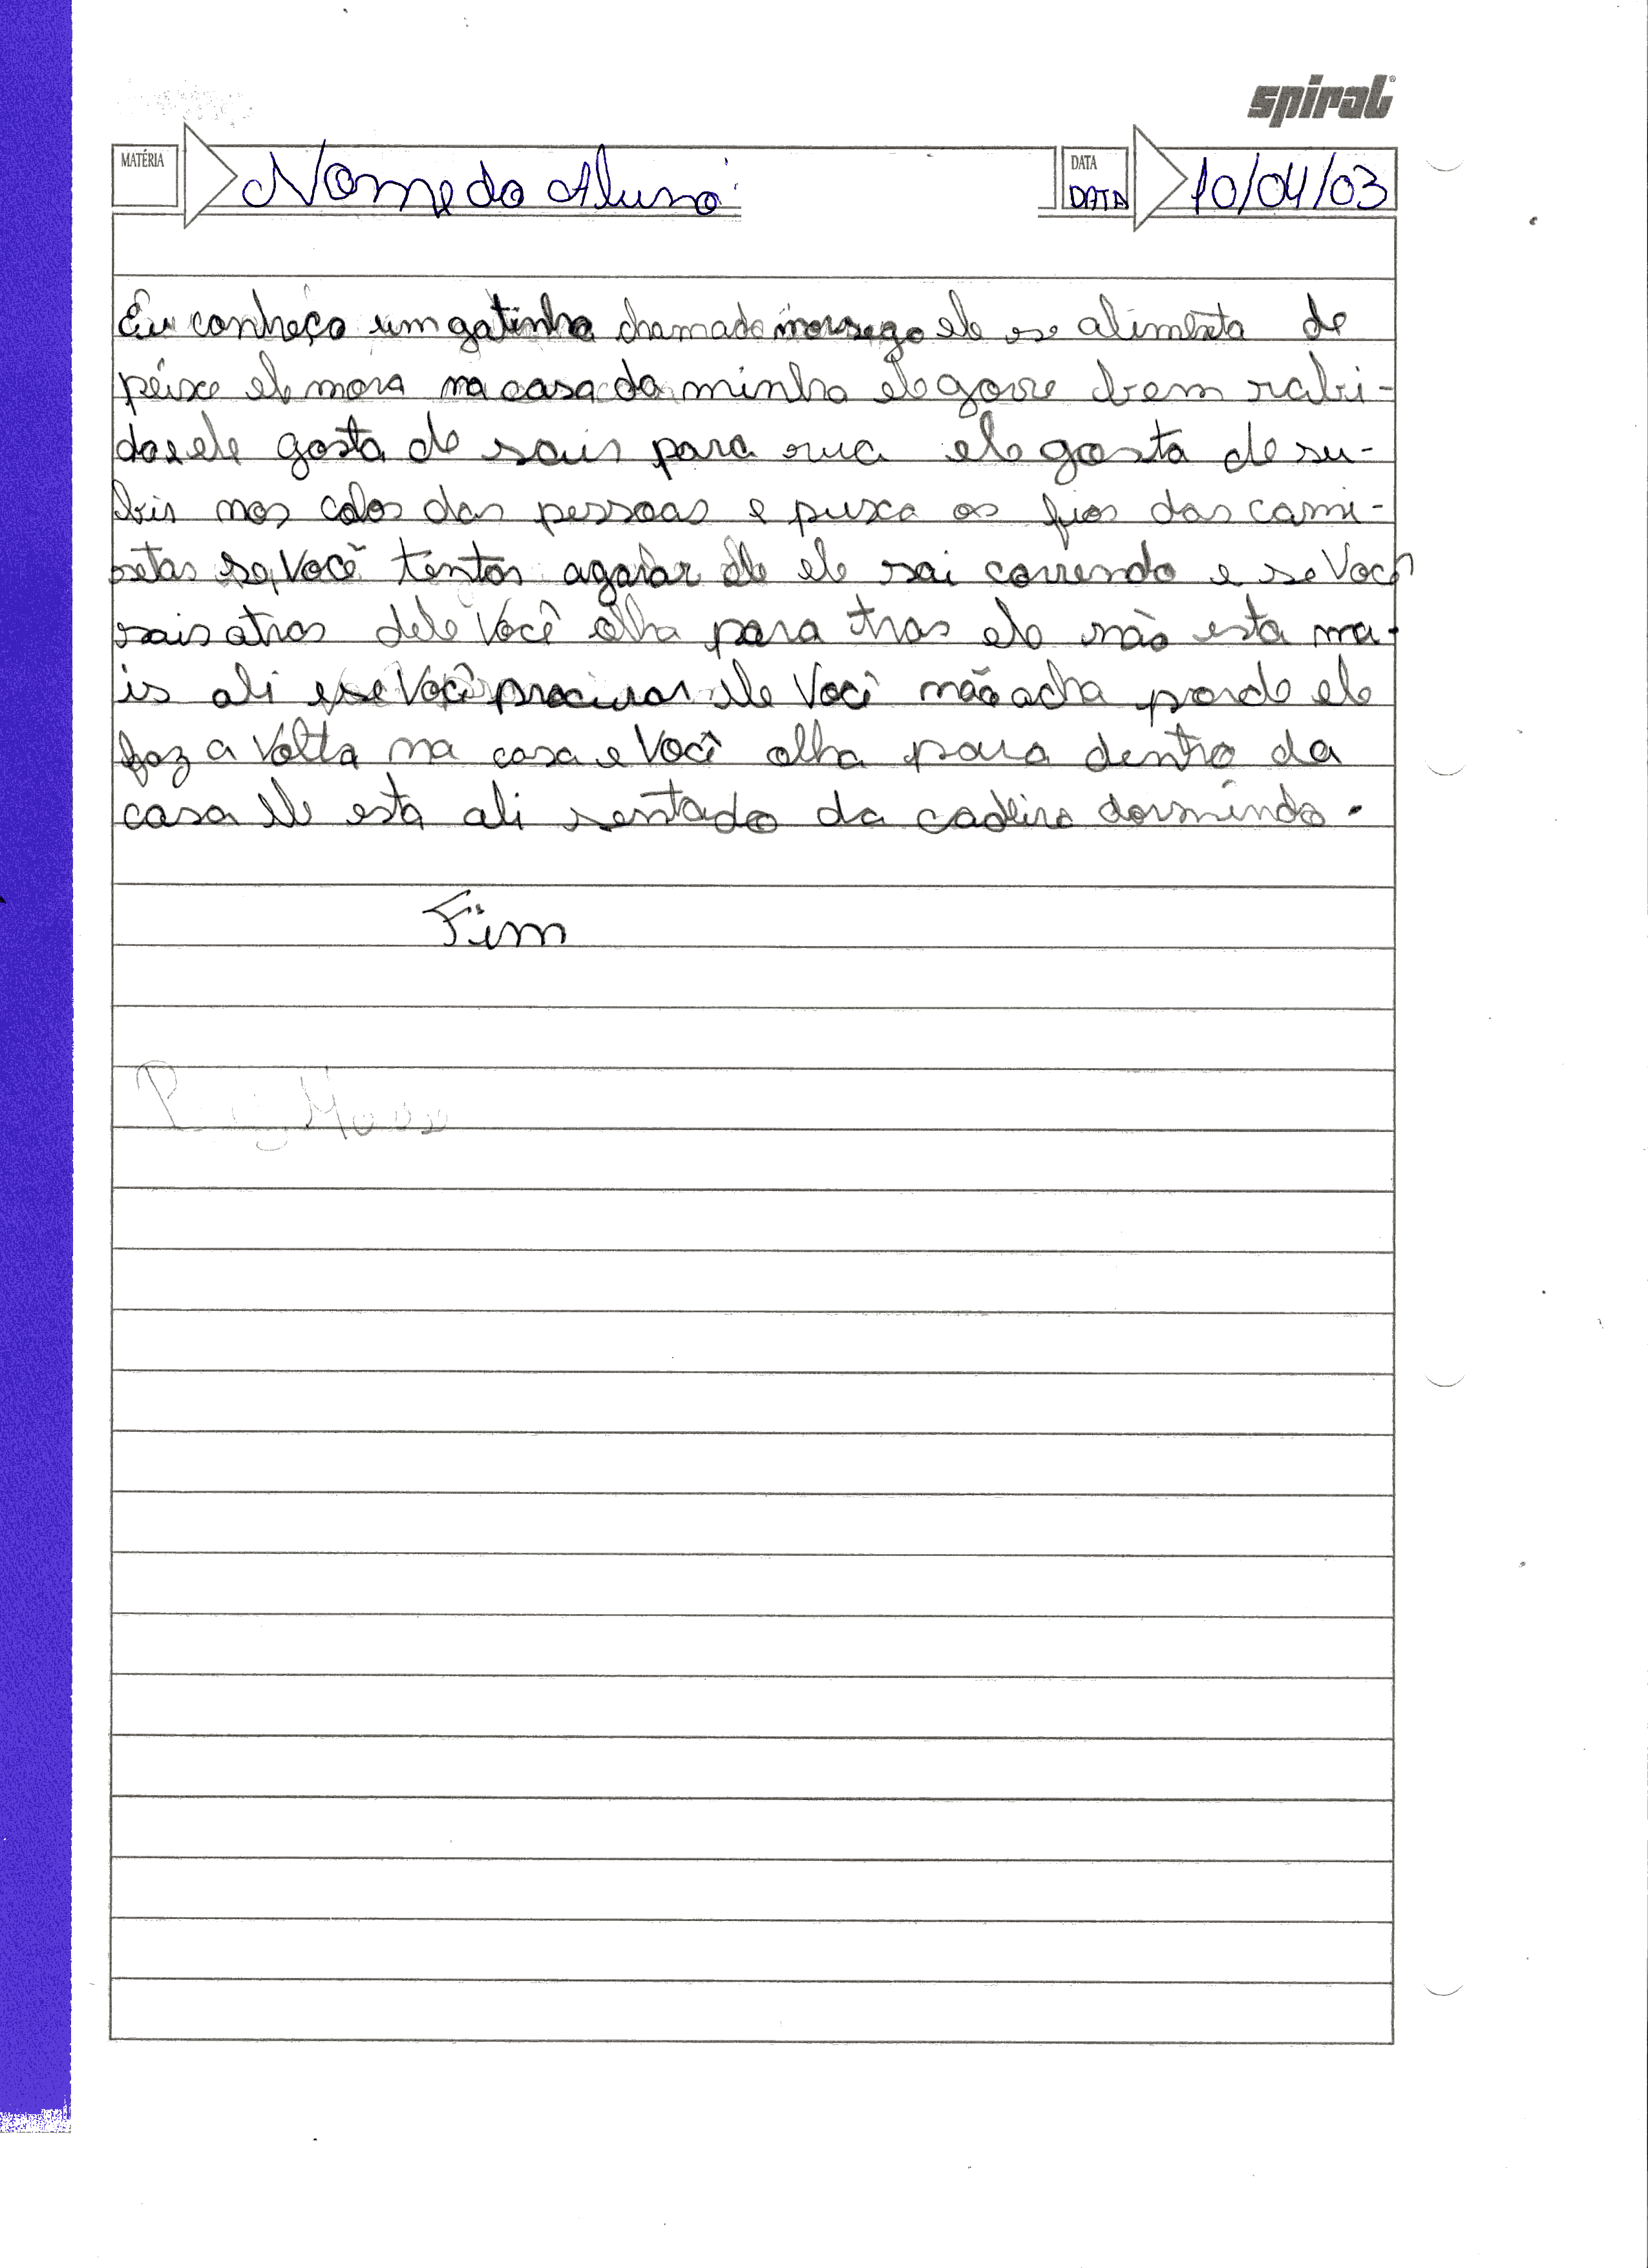 spiral
MATÉRIA Nome do Aluno DATA DATA 10/04/03
Eu conheço um gatinho chamado morsego ele se alimenta de
peixe ele mora na casa da minha ele gorre bem rabi-
do e ele gosta de sair para rua ele gosta de su-
bir nos colos das pessoas e puxa os fios das cami-
setas se você tentar agarar ele ele sai correndo e se você
sair atras dele você olha para tras ele não esta ma-
is ali e se você procurar ele você não acha porde ele
faz a volta na casa e você olha para dentro da
casa ele esta ali sentado da cadeira dormindo.
Fim